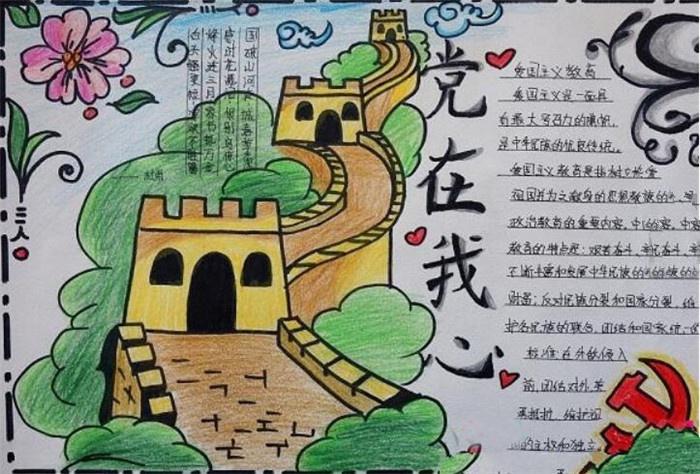 国破山河 城春草木深
感时花溅泪 恨别鸟惊心
烽火连三月 家书抵万金
白头搔更短 浑欲不胜簪
党在我心
爱国主义教育
爱国主义是一面具
有最大号召力的旗帜,
是中华民族的优良传统。
爱国主义教育是指树立热爱
祖国并为之献身的思想教
政治教育的重要内容。
教育的特点是:艰苦奋斗、
不断丰富和发展中华民族的
财富;反对民族分裂和国家分裂,
护各民族的联合、团结和国家统一
在外敌侵入
前,团结对外
抵抗,维护祖
的主权和独立。